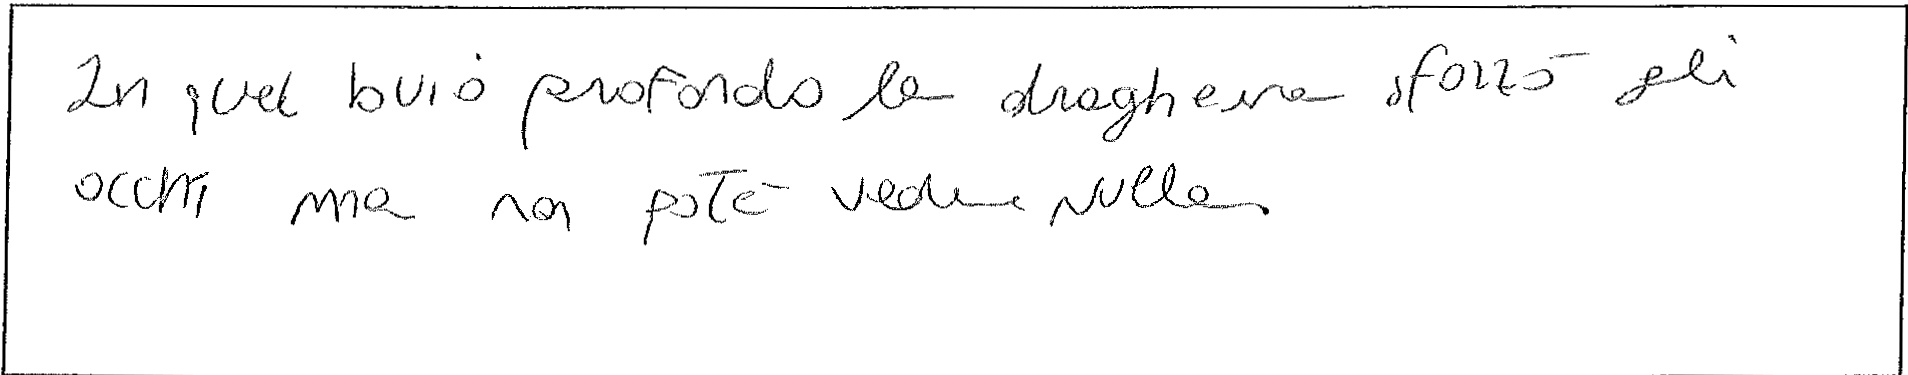 In quel buio profondo la dragheria sforzò gli
occhi ma non poté vedere nulla.